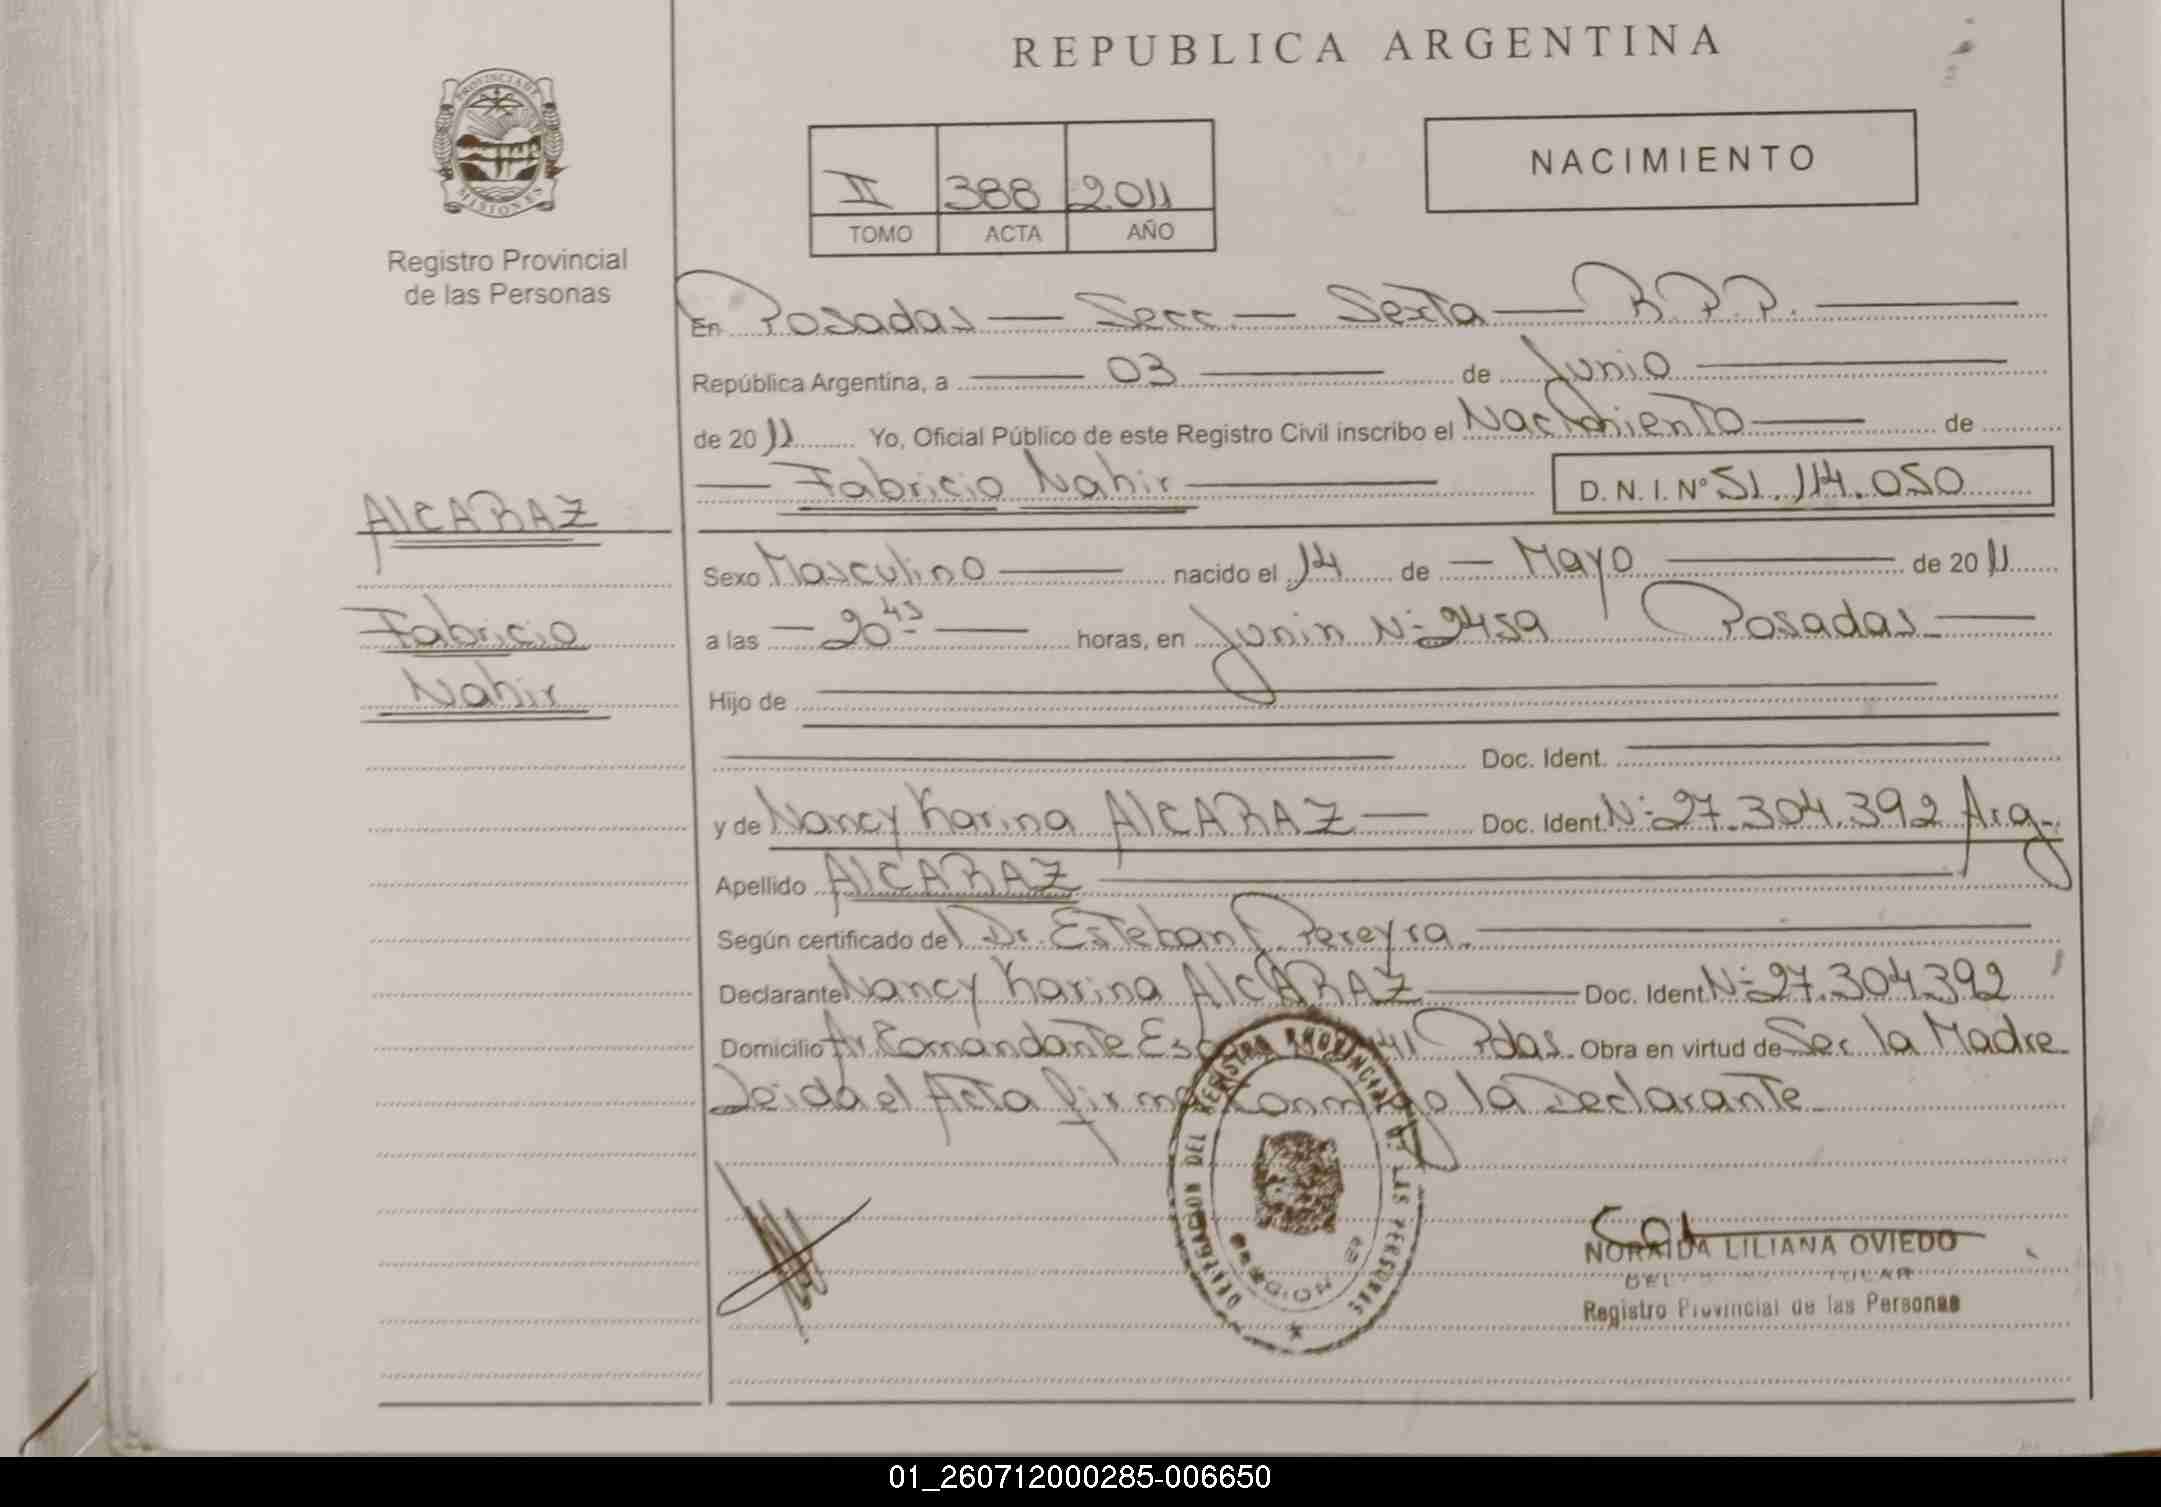 REPUBLICA ARGENTINA
PROVINCIA DE MISIONES
Registro Provincial
de las Personas
II 388 2011
TOMO ACTA AÑO
NACIMIENTO
En Posadas — Secc. — Sexta — R.P.P.
República Argentina, a 03 de Junio
de 2011 Yo, Oficial Público de este Registro Civil inscribo el Nacimiento de
Fabricio Nahir D. N. I. Nº 51.114.050
ALCARAZ
Fabricio
Nahir
Sexo Masculino nacido el 14 de Mayo de 2011
a las 20 45 horas, en Junin Nº 2459 Posadas
Hijo de
Doc. Ident.
y de Nancy Karina ALCARAZ Doc. Ident. Nº 27.304.392 Arg.
Apellido ALCARAZ
Según certificado del Dr. Esteban Pereyra.
Declarante Nancy Karina ALCARAZ Doc. Ident. Nº 27.304.392
Domicilio Av. Comandante Pdas. Obra en virtud de Ser la Madre
Leida el Acta firma conmigo la Declarante
DELEGACION DEL REGISTRO PROVINCIAL DE LAS PERSONAS
NORAIDA LILIANA OVIEDO
Registro Provincial de las Personas
01_260712000285-006650